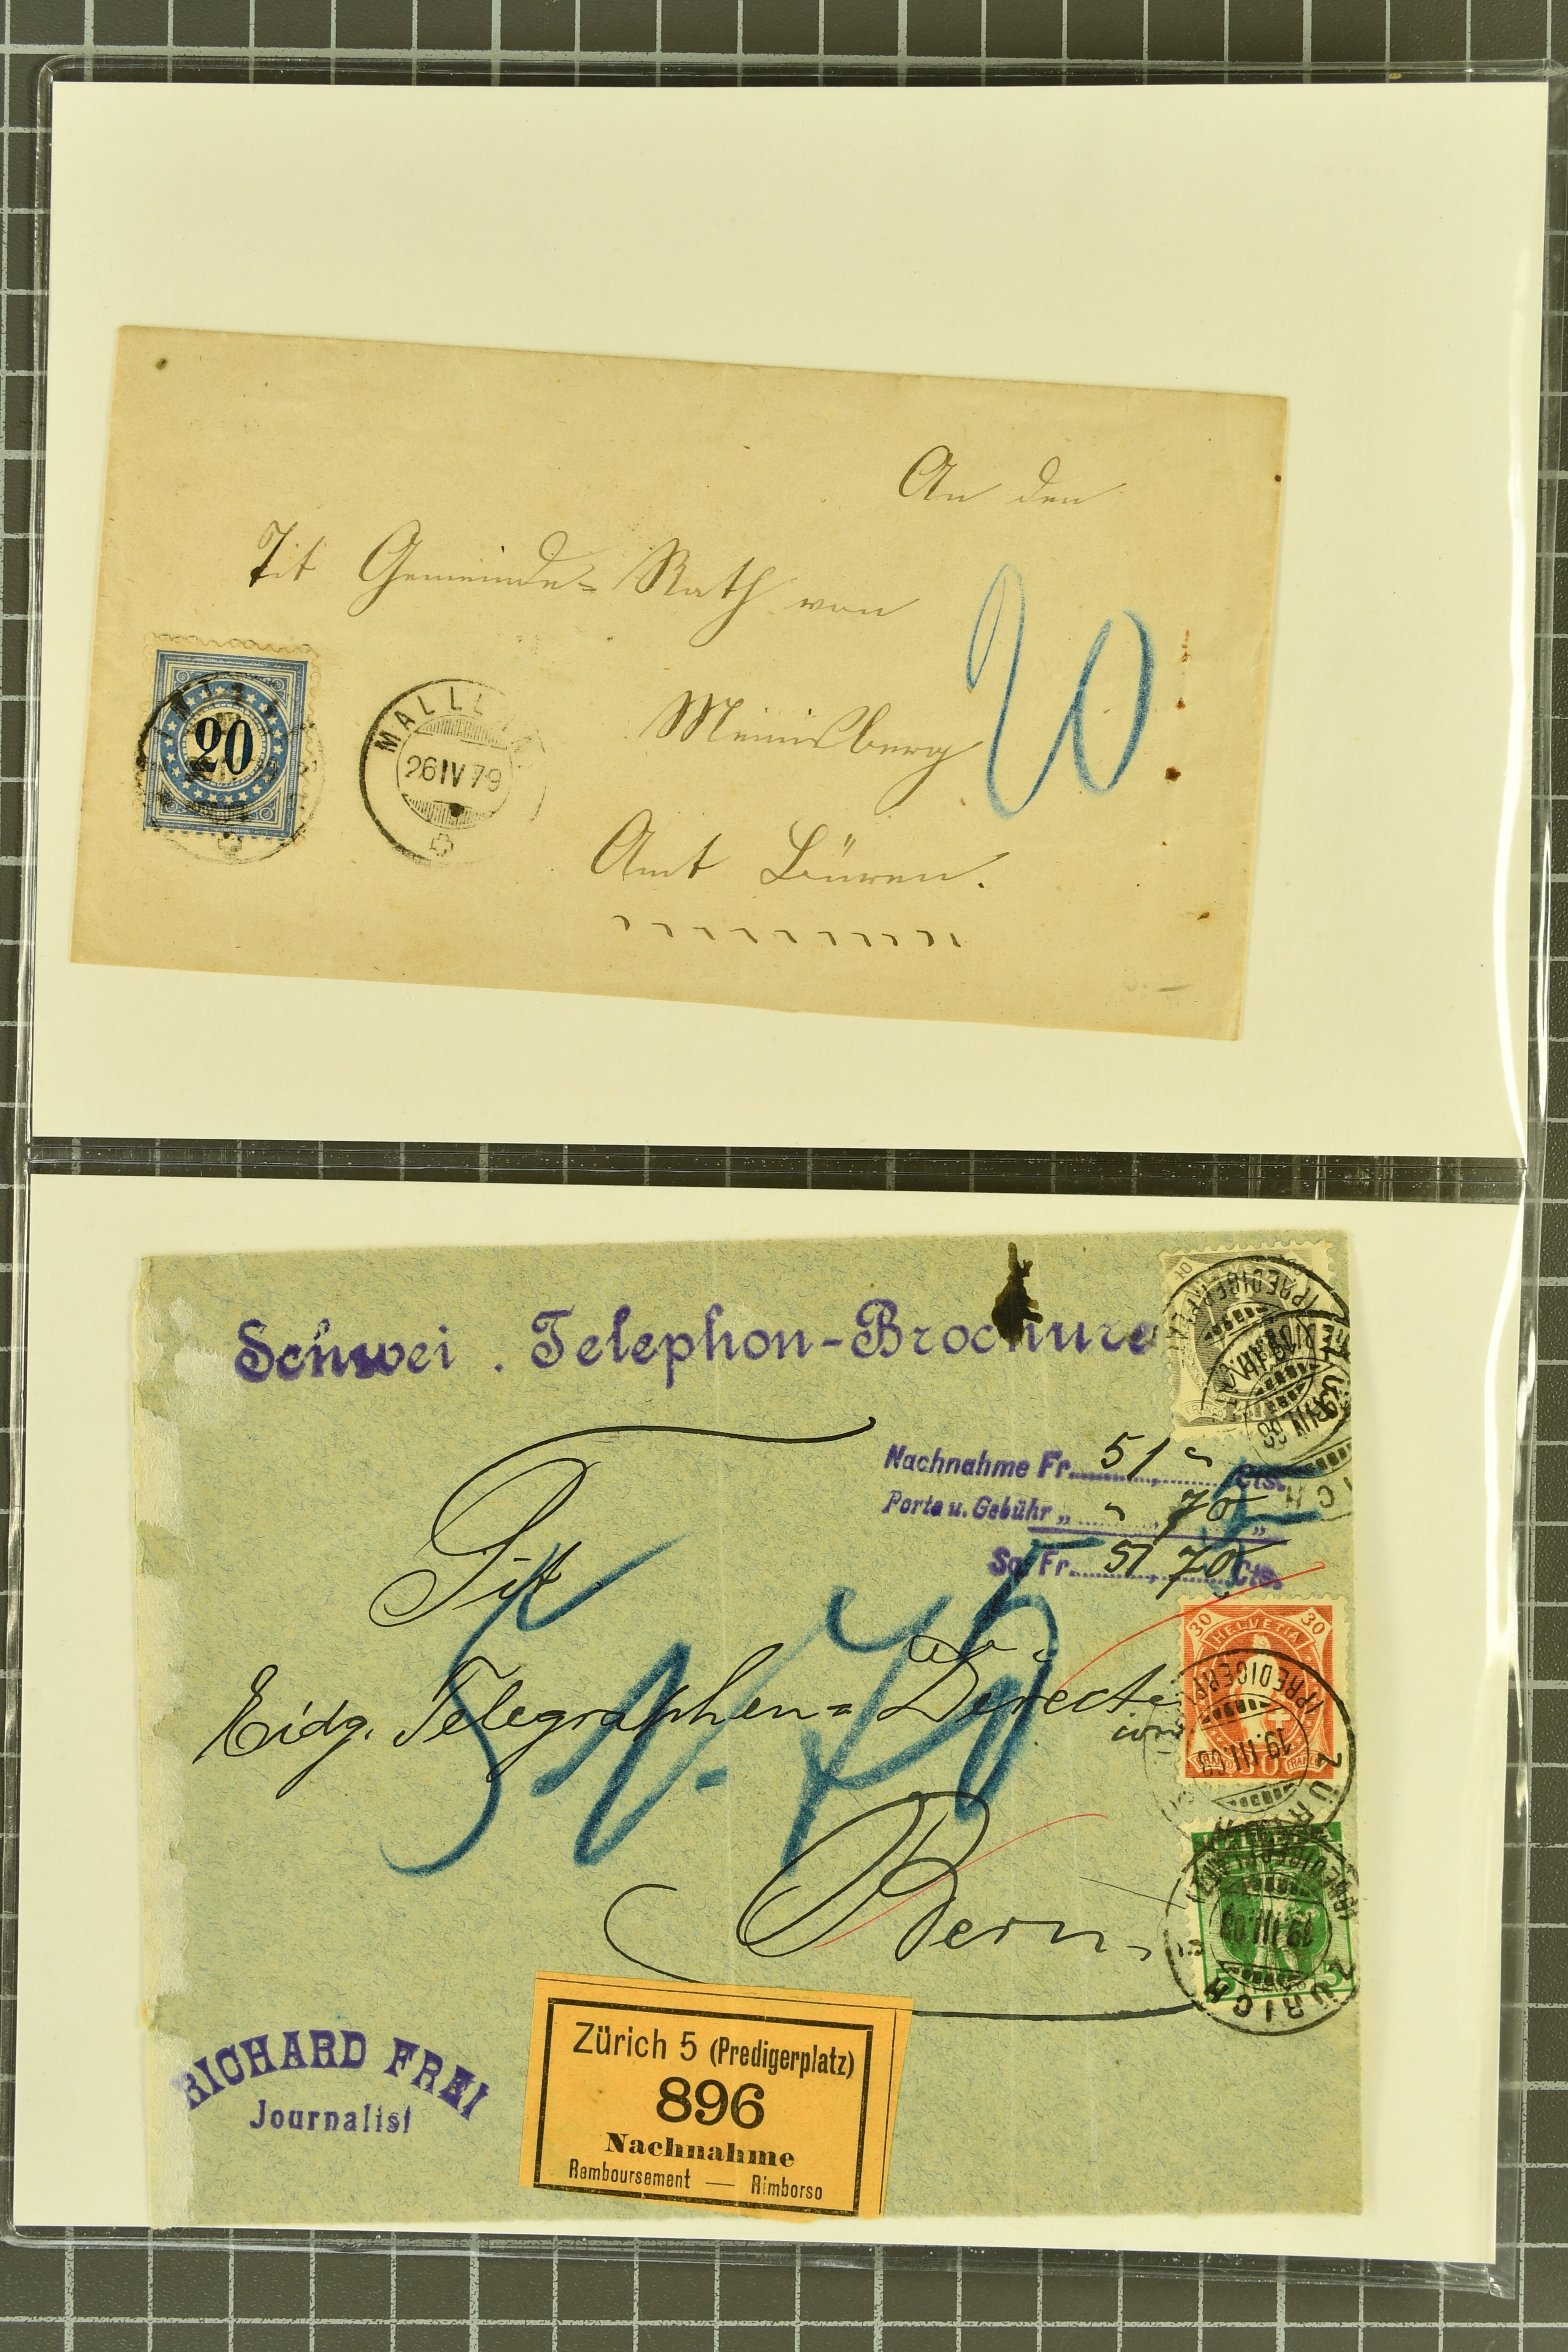 An den
Tit Gemeinde=Rath von
Meinisberg
Amt Büren.
20
20
26 IV 79
Schwei . Telephon-Brochure
Nachnahme Fr. 51 Cts.
Porto u. Gebühr „ 70 „
Sa. Fr. 51 70 Cts.
Tit.
Eidg. Telegraphen=Direct
ion
Bern
51.70
30 HELVETIA 30
(PREDIGERPLATZ)
19.III.09
ZÜRICH
(PREDIGERPLATZ)
19.III.09
ZÜRICH
5 5
RICHARD FREI
Journalist
Zürich 5 (Predigerplatz)
896
Nachnahme
Remboursement — Rimborso